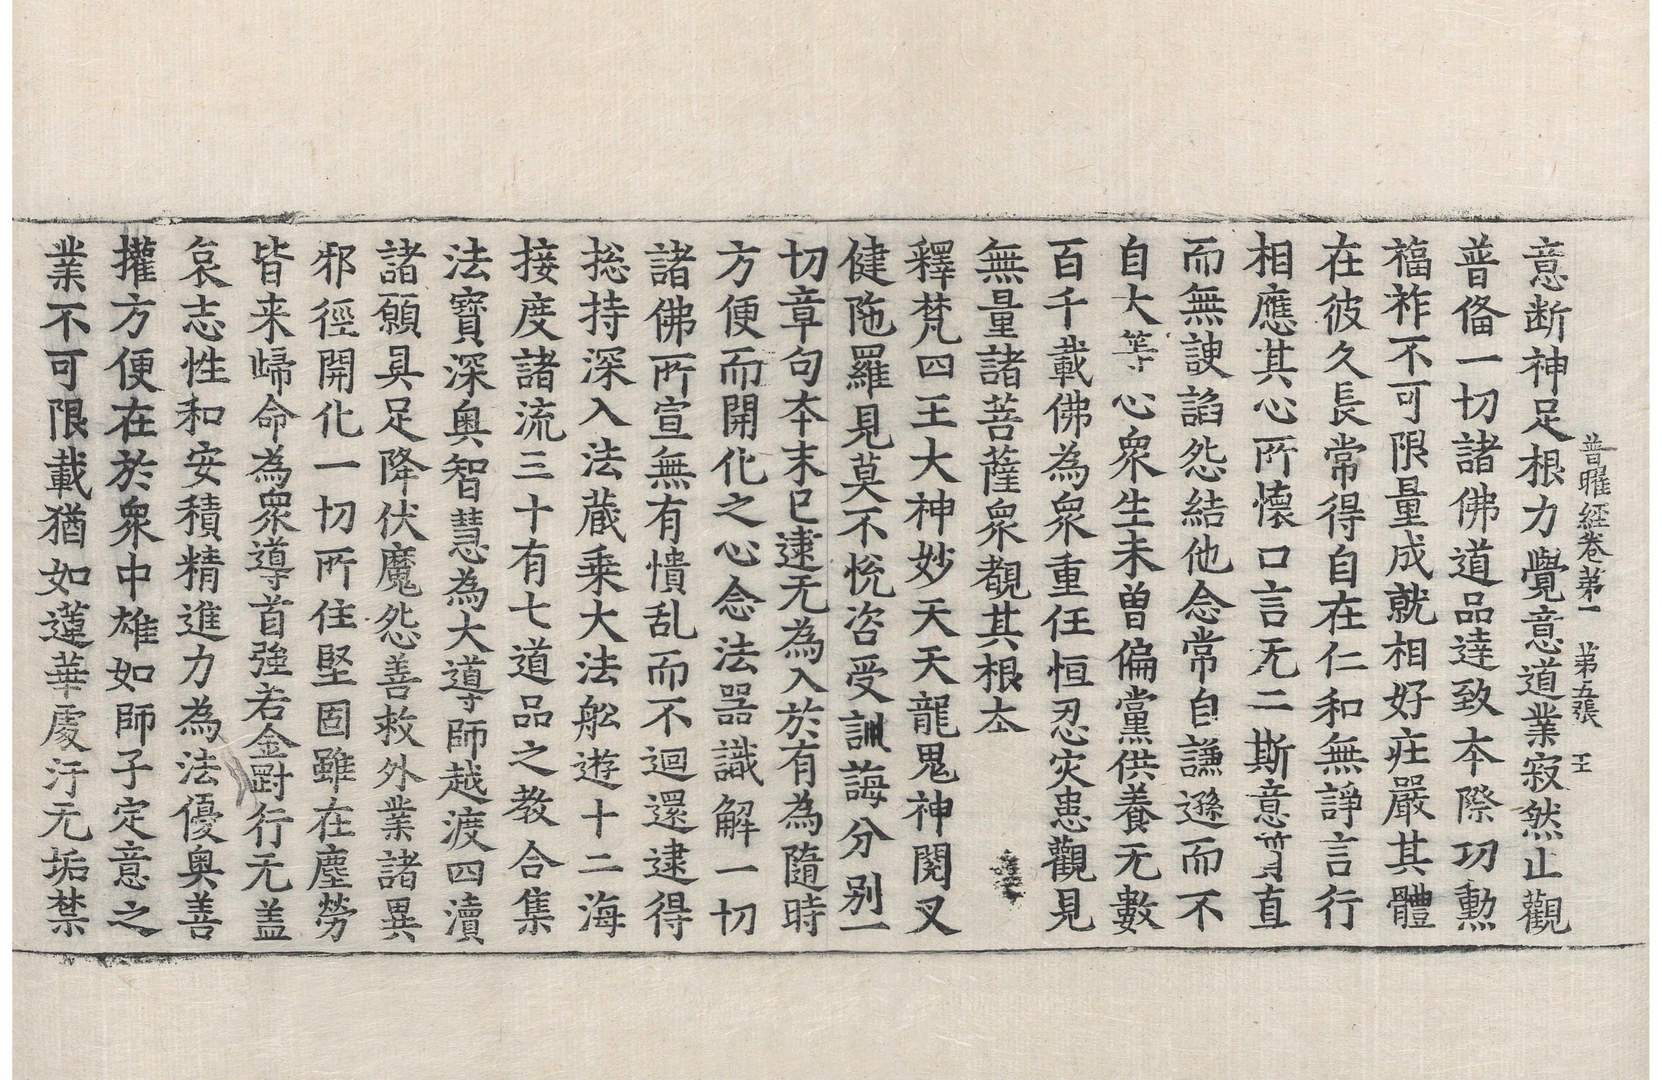 普曜經卷第一　第五張　王
意断神足根力覺意道業寂然止觀
普俻一切諸佛道品達致本際功勳
福祚不可限量成就相好庄嚴其體
在彼久長常得自在仁和無諍言行
相應其心所懷口言无二斯意質直
而無諛諂怨結他念常自謙遜而不
自大等心衆生未曾偏黨供養无數
百千載佛為衆重任恒忍灾患觀見
無量諸菩薩衆覩其根夲
釋梵四王大神妙天天龍鬼神閱叉
健陁羅見莫不恱咨受訓誨分别一
切章句夲末已逮无為入於有為隨時
方便而開化之心念法器識解一切
諸佛所宣無有憒乱而不迴還逮得
捴持深入法藏乗大法舩遊十二海
接度諸流三十有七道品之教合集
法寳深奥智慧為大導師越渡四瀆
諸願具足降伏魔怨善救外業諸異
邪徑開化一切所住堅固雖在塵勞
皆来歸命為衆導首強若金對行无盖
哀志性和安積精進力為法優奥善
攉方便在於衆中雄如師子定意之
業不可限載猶如蓮華處汙无垢禁